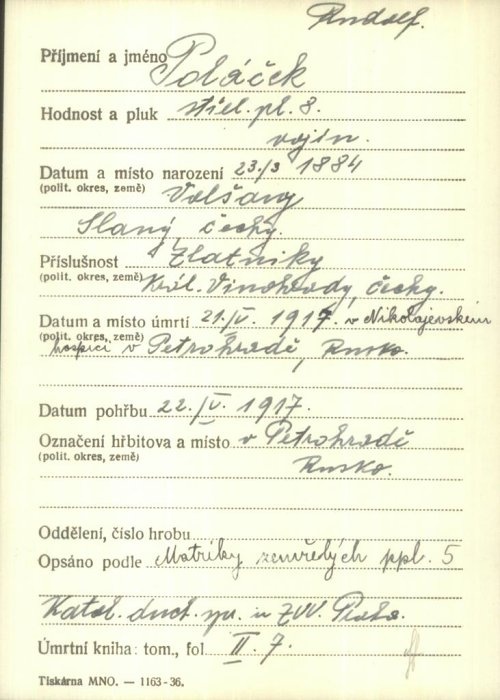 Rudolf.
Příjmení a jméno Poláček
Hodnost a pluk střel. pl. 8.
vojín.
Datum a místo narození 23./3 1884
(polit. okres, země) Volšany
Slaný, Čechy.
Příslušnost Zlatníky
(polit. okres, země) Král. Vinohrady, Čechy.
Datum a místo úmrtí 21./V. 1917. v Nikolajevském
(polit. okres, země) hospici v Petrohradě, Rusko.
Datum pohřbu 22./V. 1917.
Označení hřbitova a místo v Petrohradě
(polit. okres, země) Rusko.
Oddělení, číslo hrobu
Opsáno podle Matriky zemřelých ppl. 5
Katol. duch. spr. u ZVV. Praha.
Úmrtní kniha: tom., fol II. 7.
Tiskárna MNO. — 1163-36.